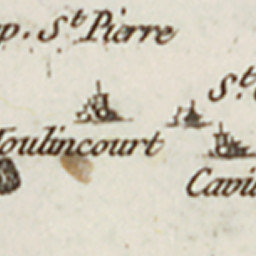 p. St Pierre
St.
oulincourt
Cavi